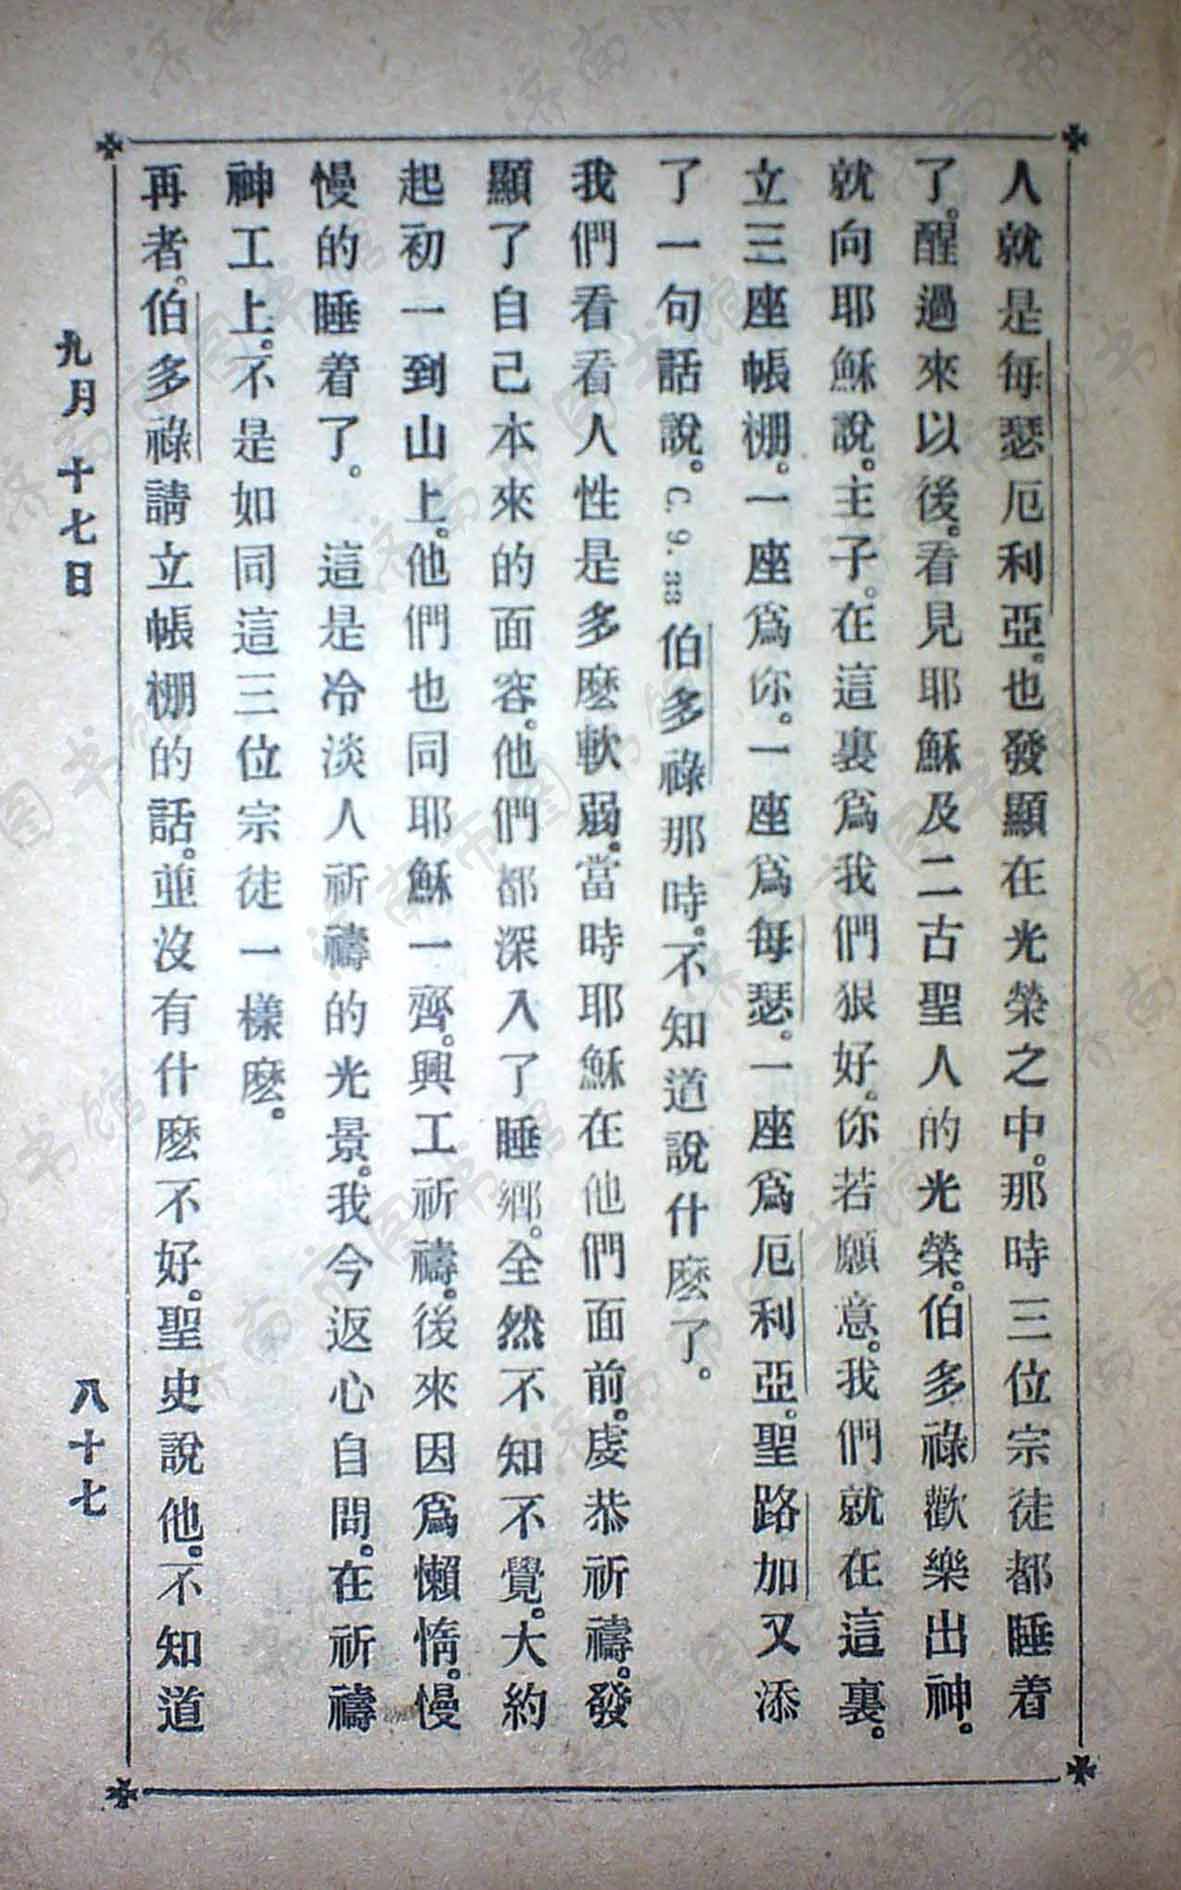 人就是每瑟厄利亞。也發顯在光榮之中。那時三位宗徒都睡着
了。醒過來以後。看見耶穌及二古聖人的光榮。伯多祿歡樂出神。
就向耶穌說。主子。在這裏爲我們狠好。你若願意。我們就在這裏。
立三座帳棚。一座爲你。一座爲每瑟。一座爲厄利亞。聖路加又添
了一句話說。C. 9. 33 伯多祿那時。不知道說什麽了。
我們看看人性是多麽軟弱。當時耶穌在他們面前。虔恭祈禱。發
顯了自己本來的面容。他們都深入了睡鄉。全然不知不覺。大約
起初一到山上。他們也同耶穌一齊。興工祈禱。後來因爲懶惰。慢
慢的睡着了。這是冷淡人祈禱的光景。我今返心自問。在祈禱
神工上。不是如同這三位宗徒一樣麽。
再者。伯多祿請立帳棚的話。並沒有什麽不好。聖史說他。不知道
九月十七日
八十七
济南市图书馆